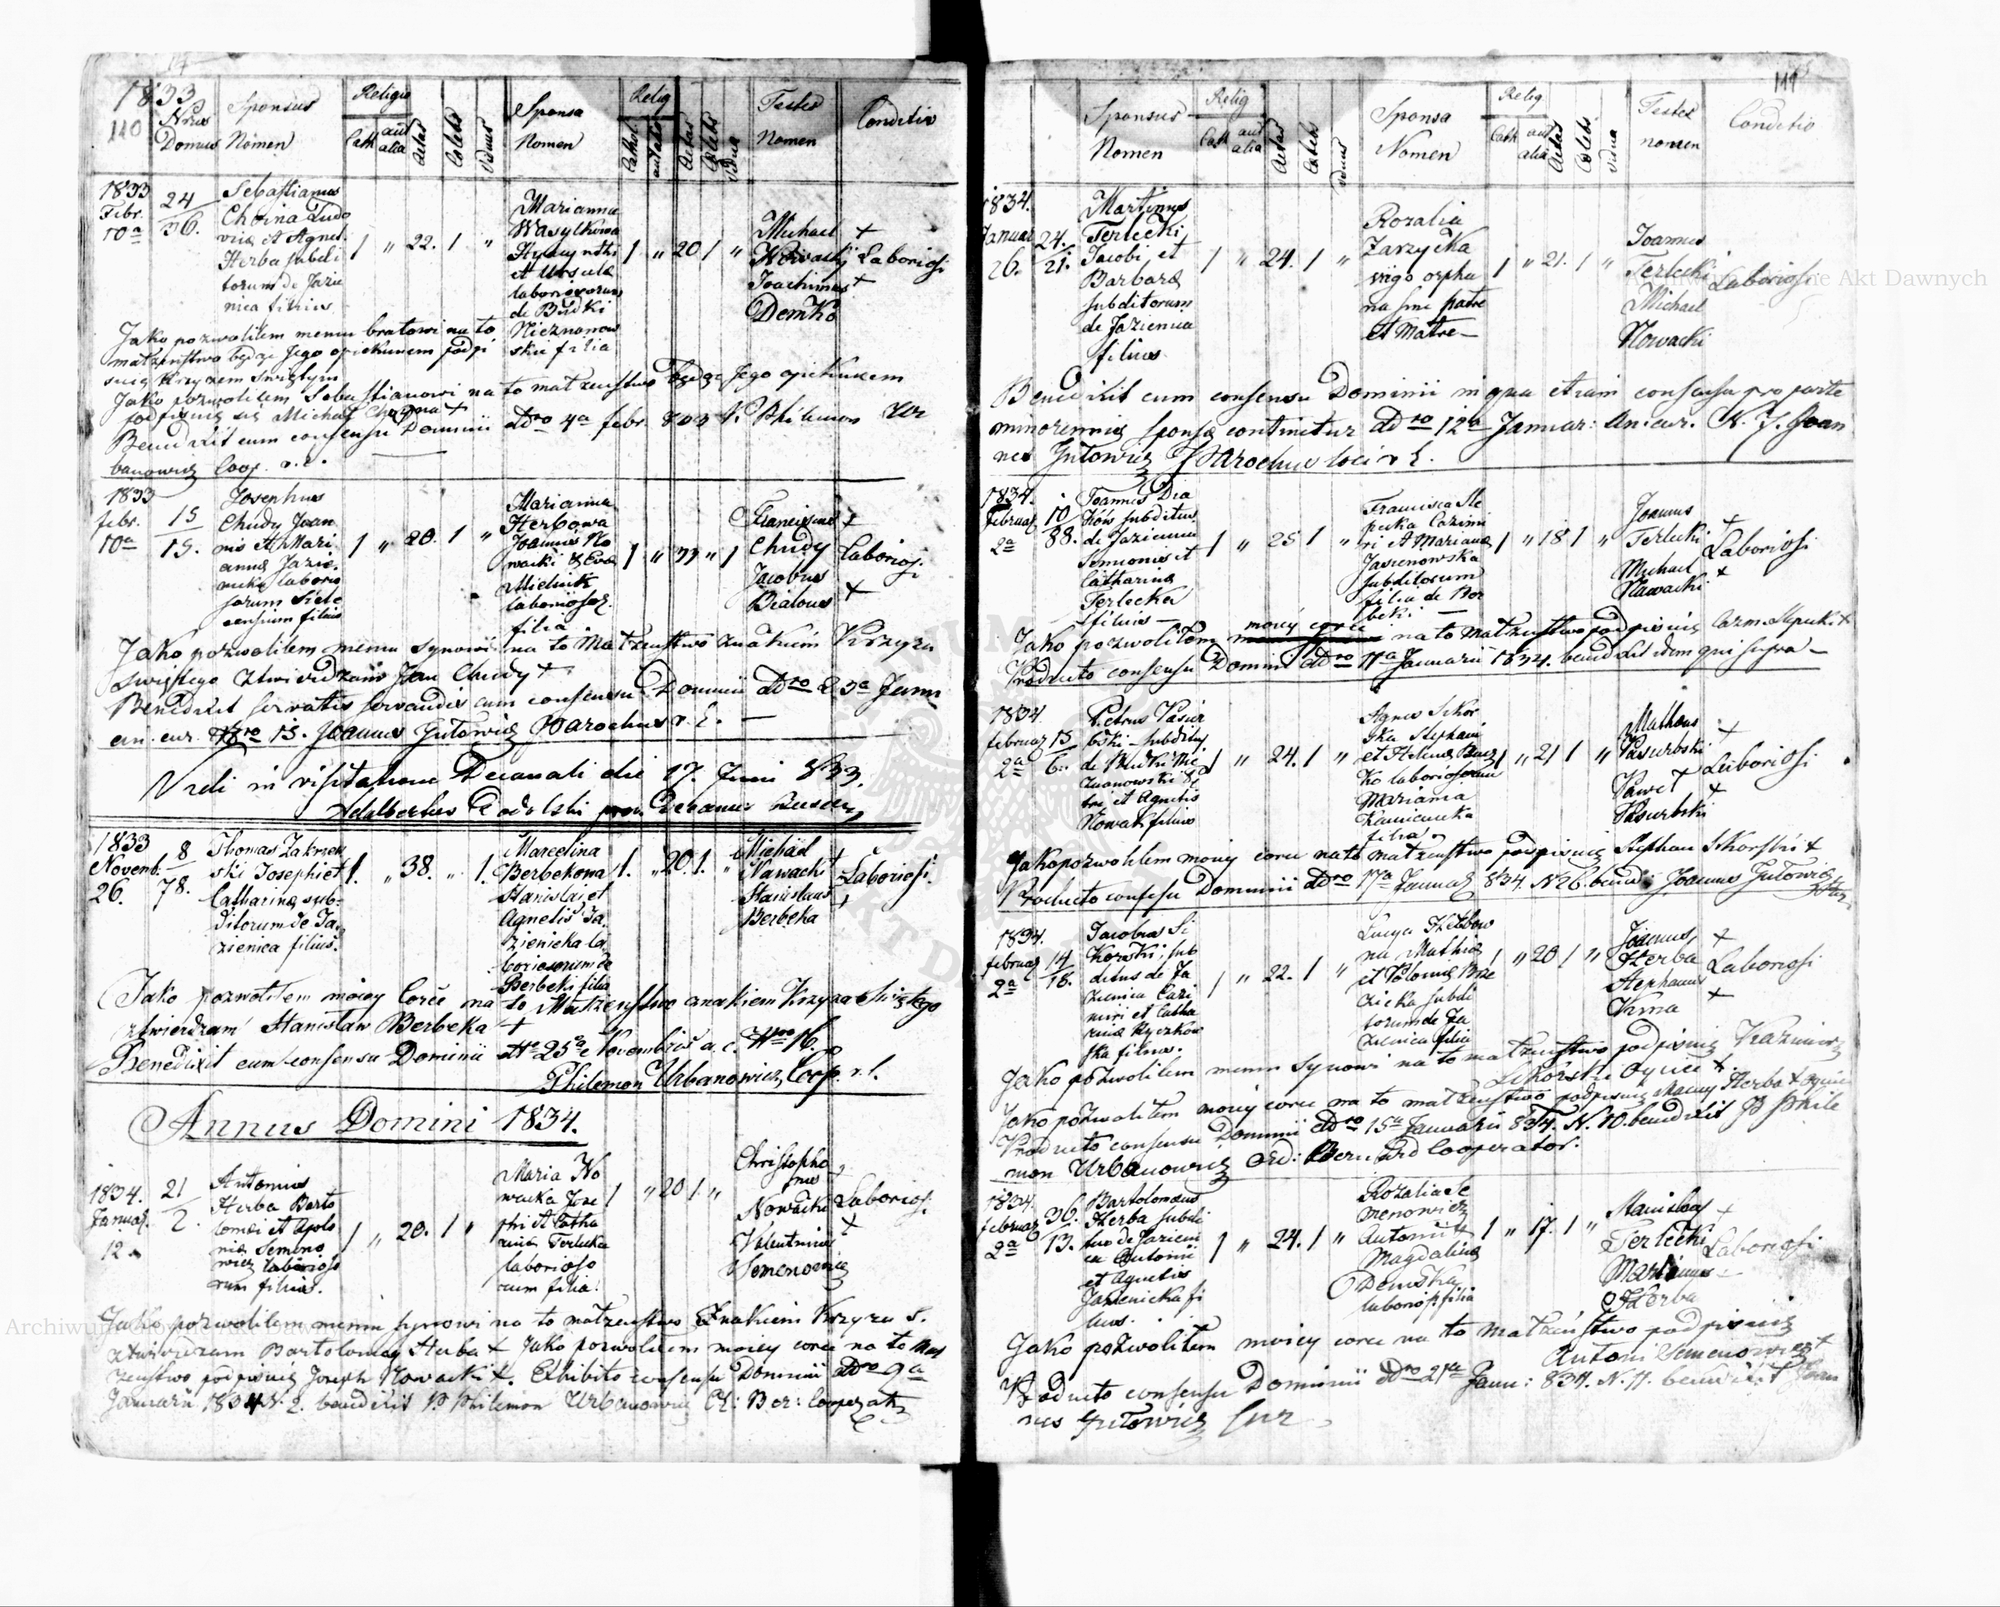 1833
110
Nrus
Domus
Sponsus
Nomen
Religio
Cath
aut
alia
Aetas
Celebs
Viduus
Sponsa
Nomen
Relig
Cathol
aut alia
Aetas
Celebs
Vidua
Testes
Nomen
Conditio
1833
Febr.
10a
24
36.
Sebastianus
Choina Ludo
vici et Agnet.
Herba subdi
torum de Jazie
nica filius
1 " 22. 1 "
Marianna
Wasylkowa
Hyacynthi
et Ursula
laboriosorum
de Budki
Nieznanow
skie filia
1 " 20 1 "
Michael +
Nowacki
Joachimus +
Demko
Laboriosi
Jako pozwoliłem memu bratowi na to
małżeństwo będąc Jego opiekunem podpi
suię krzyżem świętym
Jako pozwoliłem Sebastianowi na to małżeństwo będąc Jego opiekunem
podpisuię się Michał Choyna +
Benedixit cum consensu Dominii ddto 4a febr. 833 Philemon Ur
banowicz Coop. r. l.
1833
febr.
10a
15
15.
Josephus
Chudy Joan
nis et Mari
anna Jazie
nicka laborio
sorum Siele
censium filius
1 " 20. 1 "
Marianna
Herbowa
Joannis No
wacki & Eva
Mielnik
laboriosor.
filia
1 " 33 " 1
Franciscus +
Chudy
Jacobus
Białous +
Laboriosi
Jako pozwoliłem memu synowi na to Małżeństwo znakiem Krzyża
Swiętego ztwierdzam Jan Chudy +
Benedixit servatis servandis cum consensu Dominii ddto 23a Janu
an. cur. Nro 15. Joannes Gutowicz Parochus r. l. —
Vidi in visitatione Decanali die 17. Junii 833.
Adalbertus Podolski Decanus
1833
Novemb.
26.
8
78.
Thomas Zakrzew
ski Josephi et
Catharina sub-
ditorum de Ja
zienica filius.
1. " 38. " 1.
Marcelina
Berbekowa
Stanislai et
Agnetis Ja
zienicka la
boriosorum de
Berbeki filia
1. " 20. 1. "
Michael +
Nowacki
Stanislaus +
Berbeka
Laboriosi.
Jako pozwoliłem moiey Corce na to Małżeństwo znakiem Krzyża Swiętego
ztwierdzam Stanisław Berbeka +
Benedixit cum consensu Dominii dto 25a Novembris a. c. Nro 16.
Philemon Urbanowicz Coop. r. l.
Annus Domini 1834.
1834.
Januar.
12.
21
2.
Antonius
Herba Barto
lomei et Apolo
nia Semeno
wicz laborioso
rum filius.
1 " 20. 1 "
Maria No
wacka Jose
phi et Catha
rina Terlecka
laborioso
rum filia.
1 " 20 1. "
Christopho
rus
Nowacki
+
Valentinus
Semenowicz
Laboriosi.
Jako pozwoliłem memu synowi na to małżeństwo Znakiem Krzyża S.
ztwierdzam Bartolomey Herba + Jako pozwoliłem moiey corce na to Mał
żeństwo podpisuię Joseph Nowacki +. Exhibito consensu Dominii ddto 9a
Januarii 1834 N. 2. benedixit P. Philemon Urbanowicz Cooperator
111
Sponsus
Nomen
Relig
Cath
aut
alia
Aetas
Celebs
Viduus
Sponsa
Nomen
Relig
Cath
aut
alia
Aetas
Celebs
Vidua
Testes
nomen
Conditio
1834.
Januar
26.
24.
21.
Martinus
Terlecki
Jacobi, et
Barbara
subditorum
de Jazienica
filius
1 " 24. 1 "
Rozalia
Zarzycka
virgo orpha
na sine patre
et Matre —
1 " 21. 1 "
Joannes
Terlecki
Michael
Nowacki
Laboriosi
Benedixit cum consensu Dominii in qua etiam consensu pro parte
minorennis sponsa continetur ddto 12a Januar: an. cur. N. 7. Joan
nes Gutowicz Parochus loci r. l.
1834.
Februar
2a
10
88.
Joannes Dia
ków subditus
de Jazienica
Simionis et
Catharina
Terlecka
filius —
1 " 25 1 "
Francisca Sle
pucka Cazimi
ri et Mariana
Jasienowska
subditorum
filia de Ber
beki —
1 " 18 1 "
Joannes +
Terlecki
Michael +
Nawacki
Laboriosi
moiey corce
Jako pozwoliłem na to małżeństwo podpisuię Cazm. Slepucki +
Producto consensu Dominii ddto 11a Januarii 1834. benedixit idem qui supra —
1834
februar
2a
15
6.
Petrus Pasier
bski subditus
de Budki Nie
znanowskie
et Agnetis
Nowak filius
1 " 24. 1 "
Agnes Sikor
ska Stephani
et Helena
ko laboriosorum
Marianna
Kamieniecka
filia.
1 " 21 1 "
Matheus +
Pasierbski
Paweł +
Pasierbski
Laboriosi
Jako pozwoliłem moiey corce na to małżeństwo podpisuię Stephan Sikorski +
Producto consensu Dominii ddto 17a Januar 834. N. 26. bened: Joannes Gutowicz
1834.
februar
2a
14
18.
Jacobus Si
korski, sub
ditus de Ja
zienica Cazi
miri et Catha
rina Ryczkow
ska filius.
1 " 22. 1 "
Lucya Herbow
na Mathia
et Polonia Brze
zicka subdi
torum de Ja
zienica filia
1 " 20 1 "
Joannes, +
Herba
Stephanus +
Kuna
Laboriosi
Jako pozwoliłem memu synowi na to małżeństwo podpisuię Kazimirz
Sikorski Oyciec +.
Jako pozwoliłem moiey corce na to małżeństwo podpisuię Maciey Herba + Oyciec
Producto consensu Dominii ddto 15a Januarii 834. N. 10. benedixit P. Phile
mon Urbanowicz Ord: Bern: Cooperator.
1834.
februar
2a
36.
13.
Bartolomeus
Herba subdi
tus de Jazieni
ca Antonii
et Agnetis
Jazienicka fi
lius.
1 " 24. 1 "
Rozalia Se
menowicz
Antonii et
Magdalina
Demska
laborios filia
1 " 17. 1 "
Stanislaus +
Terlecki
Martinus —
Herba
Laboriosi
Jako pozwoliłem moiey corce na to małżeństwo podpisuię
Antoni Semenowicz +
Producto consensu Dominii ddto 21a Janu: 834. N. 11. benedixit Joan
nes Gutowicz Cur
Archiwum Główne Akt Dawnych
Archiwum Główne Akt Dawnych